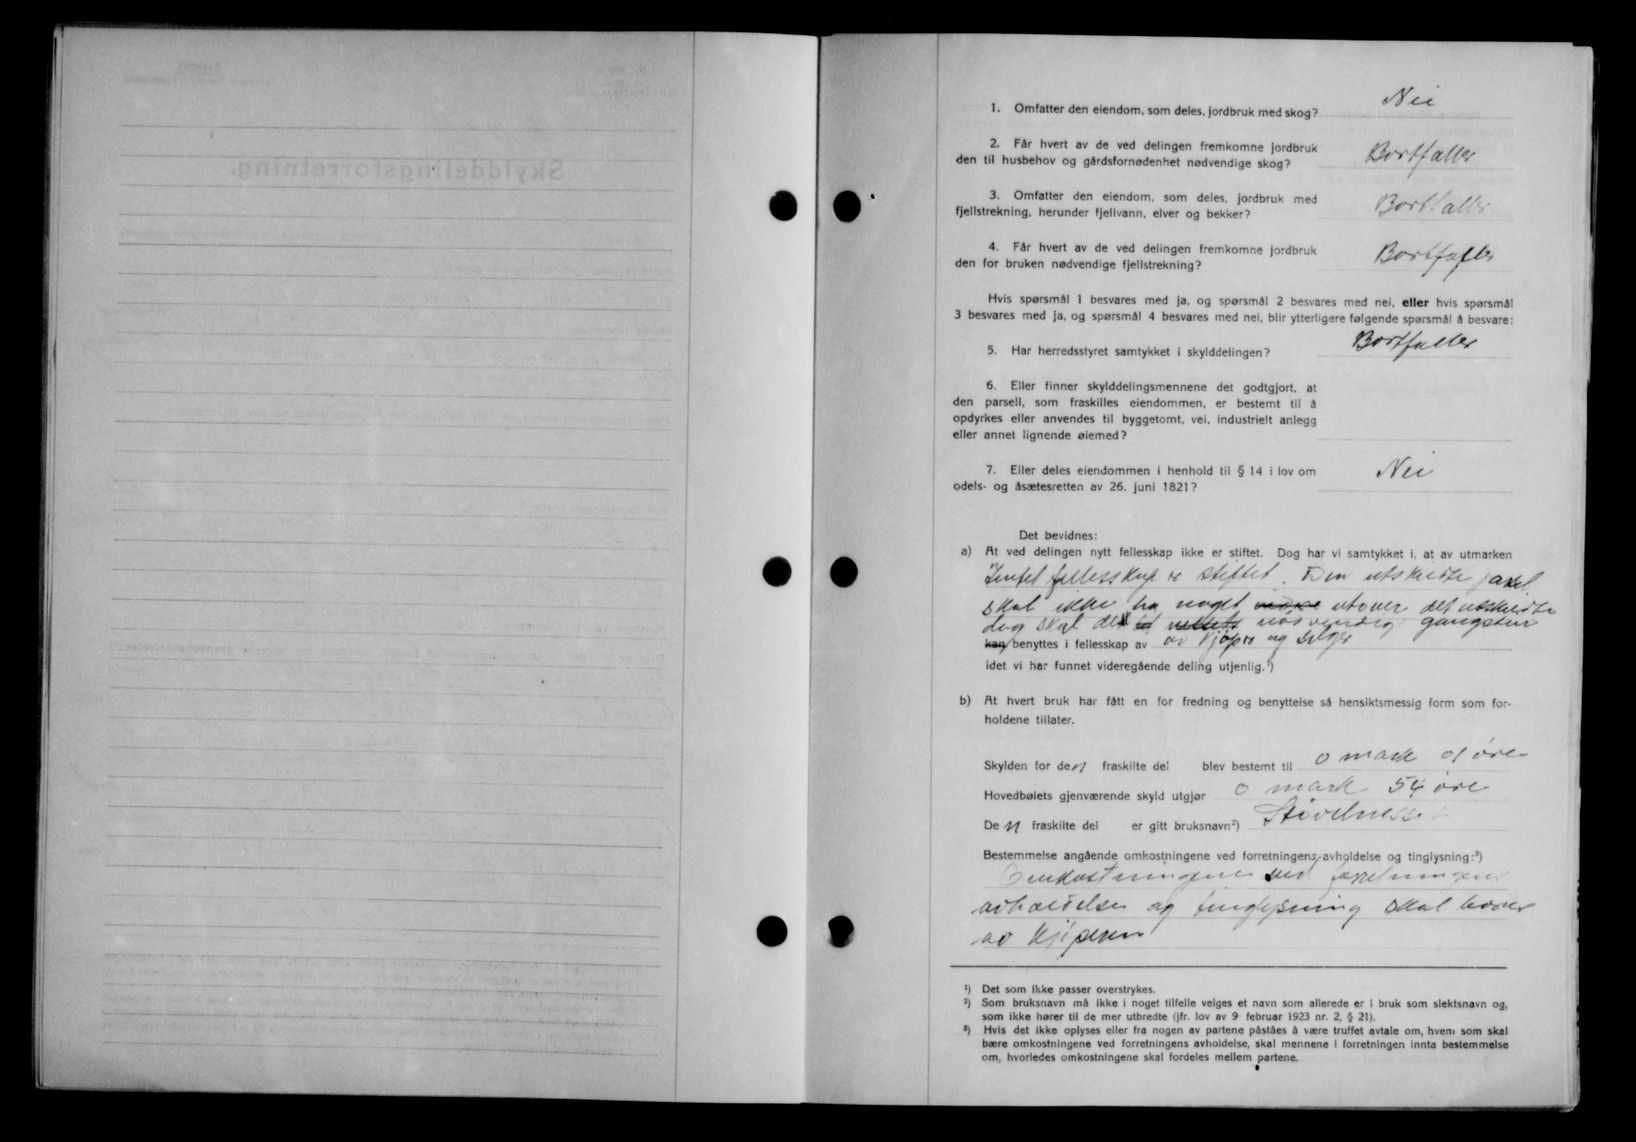 1. Omfatter den eiendom, som deles, jordbruk med skog? Nei
2. Får hvert av de ved delingen fremkomne jordbruk
den til husbehov og gårdsfornødenhet nødvendige skog? Bortfaller
3. Omfatter den eiendom, som deles, jordbruk med
fjellstrekning, herunder fjellvann, elver og bekker? Bortfaller
4. Får hvert av de ved delingen fremkomne jordbruk
den for bruken nødvendige fjellstrekning? Bortfaller
Hvis spørsmål 1 besvares med ja, og spørsmål 2 besvares med nei, eller hvis spørsmål
3 besvares med ja, og spørsmål 4 besvares med nei, blir ytterligere følgende spørsmål å besvare:
5. Har herredsstyret samtykket i skylddelingen? Bortfaller
6. Eller finner skylddelingsmennene det godtgjort, at
den parsell, som fraskilles eiendommen, er bestemt til å
opdyrkes eller anvendes til byggetomt, vei, industrielt anlegg
eller annet lignende øiemed?
7. Eller deles eiendommen i henhold til § 14 i lov om
odels- og åsætesretten av 26. juni 1821? Nei
Det bevidnes:
a) At ved delingen nytt fellesskap ikke er stiftet. Dog har vi samtykket i, at av utmarken
Intet fellesskap er stiftet. Den utskildte parsel
skal ikke ha noget utover det utskildte
dog skal det nødvendig gangstur
kan benyttes i fellesskap av av kjøper og selger
idet vi har funnet videregående deling utjenlig.¹)
b) At hvert bruk har fått en for fredning og benyttelse så hensiktsmessig form som for-
holdene tillater.
Skylden for den fraskilte del blev bestemt til 0 mark 01 øre
Hovedbølets gjenværende skyld utgjør 0 mark 54 øre
Den fraskilte del er gitt bruksnavn²) Støvelnesset
Bestemmelse angående omkostningene ved forretningens avholdelse og tinglysning:³)
Omkostningene ved forretningens
avholdelse og tinglysning skal bæres
av kjøperen
¹) Det som ikke passer overstrykes.
²) Som bruksnavn må ikke i noget tilfelle velges et navn som allerede er i bruk som slektsnavn og,
som ikke hører til de mer utbredte (jfr. lov av 9 februar 1923 nr. 2, § 21).
³) Hvis det ikke oplyses eller fra nogen av partene påståes å være truffet avtale om, hvem som skal
bære omkostningene ved forretningens avholdelse, skal mennene i forretningen innta bestemmelse
om, hvorledes omkostningene skal fordeles mellem partene.